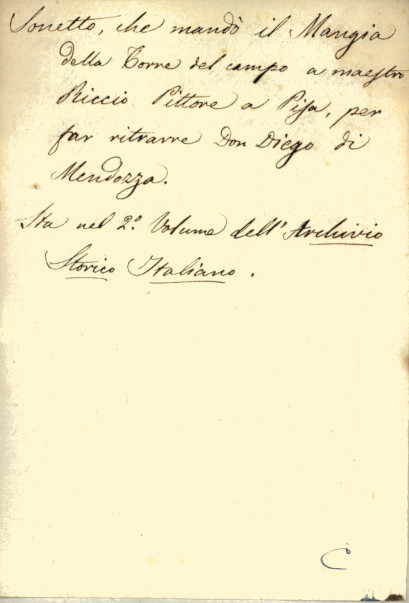 Sonetto, che mandò il Mangia
della Torre del campo a maestro
Riccio Pittore a Pisa, per
far ritrarre Don Diego di
Mendozza.
Sta nel 2.º Volume dell'Archivio
Storico Italiano.